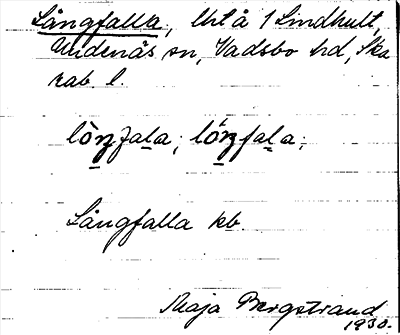 Långfalla, Utå 1 Lindhult,
Undenäs sn, Vadsbo hd, Ska
rab. l.
lòŋfala; lóŋfala;
Långfalla kb.
Maja Bergstrand
1930.